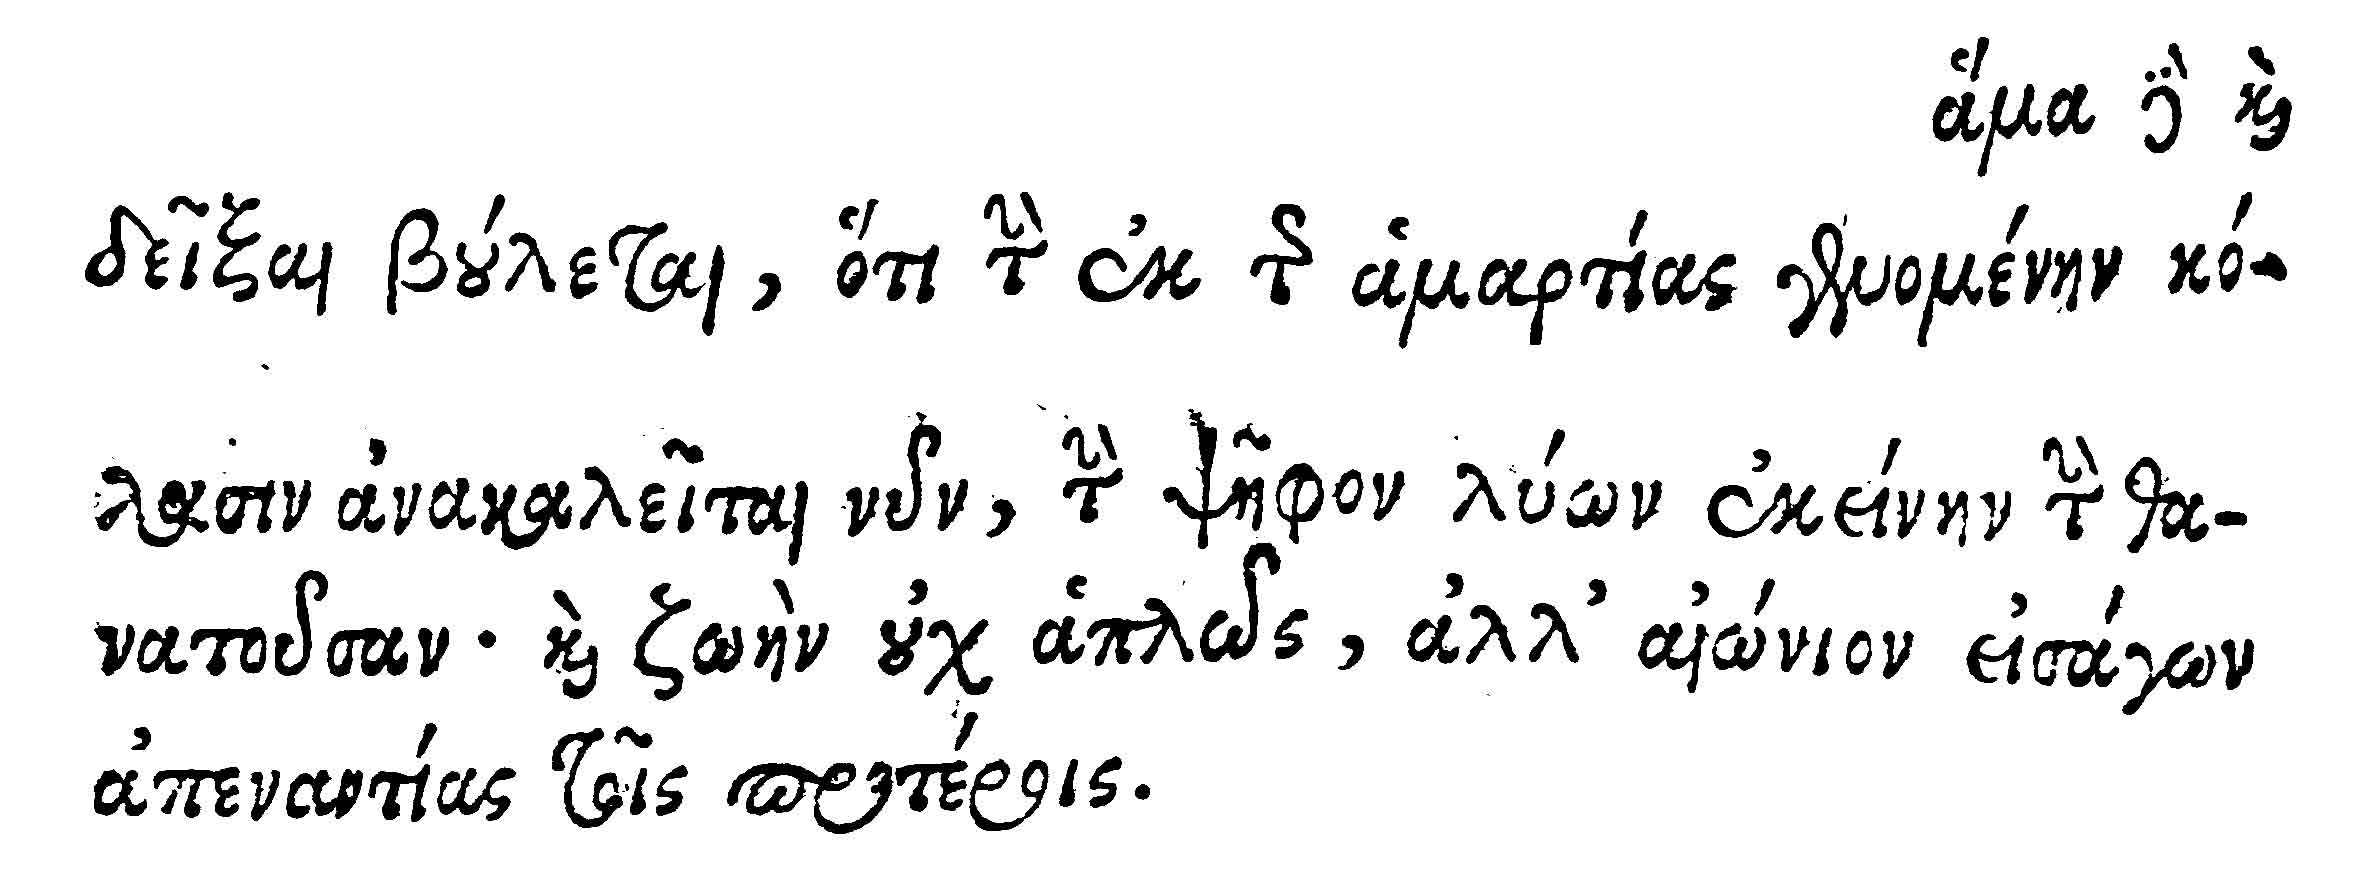 ἅμα δὲ καὶ
δεῖξαι βούλεται, ὅτι τὴν ἐκ τῆς ἁμαρτίας γενομένην κό-
λασιν ἀνακαλεῖται νῦν, τὴν ψῆφον λύων ἐκείνην τὴν θα-
νατοῦσαν· καὶ ζωὴν οὐχ ἁπλῶς, ἀλλ' αἰώνιον εἰσάγων
ἀπεναντίας τοῖς προτέροις.